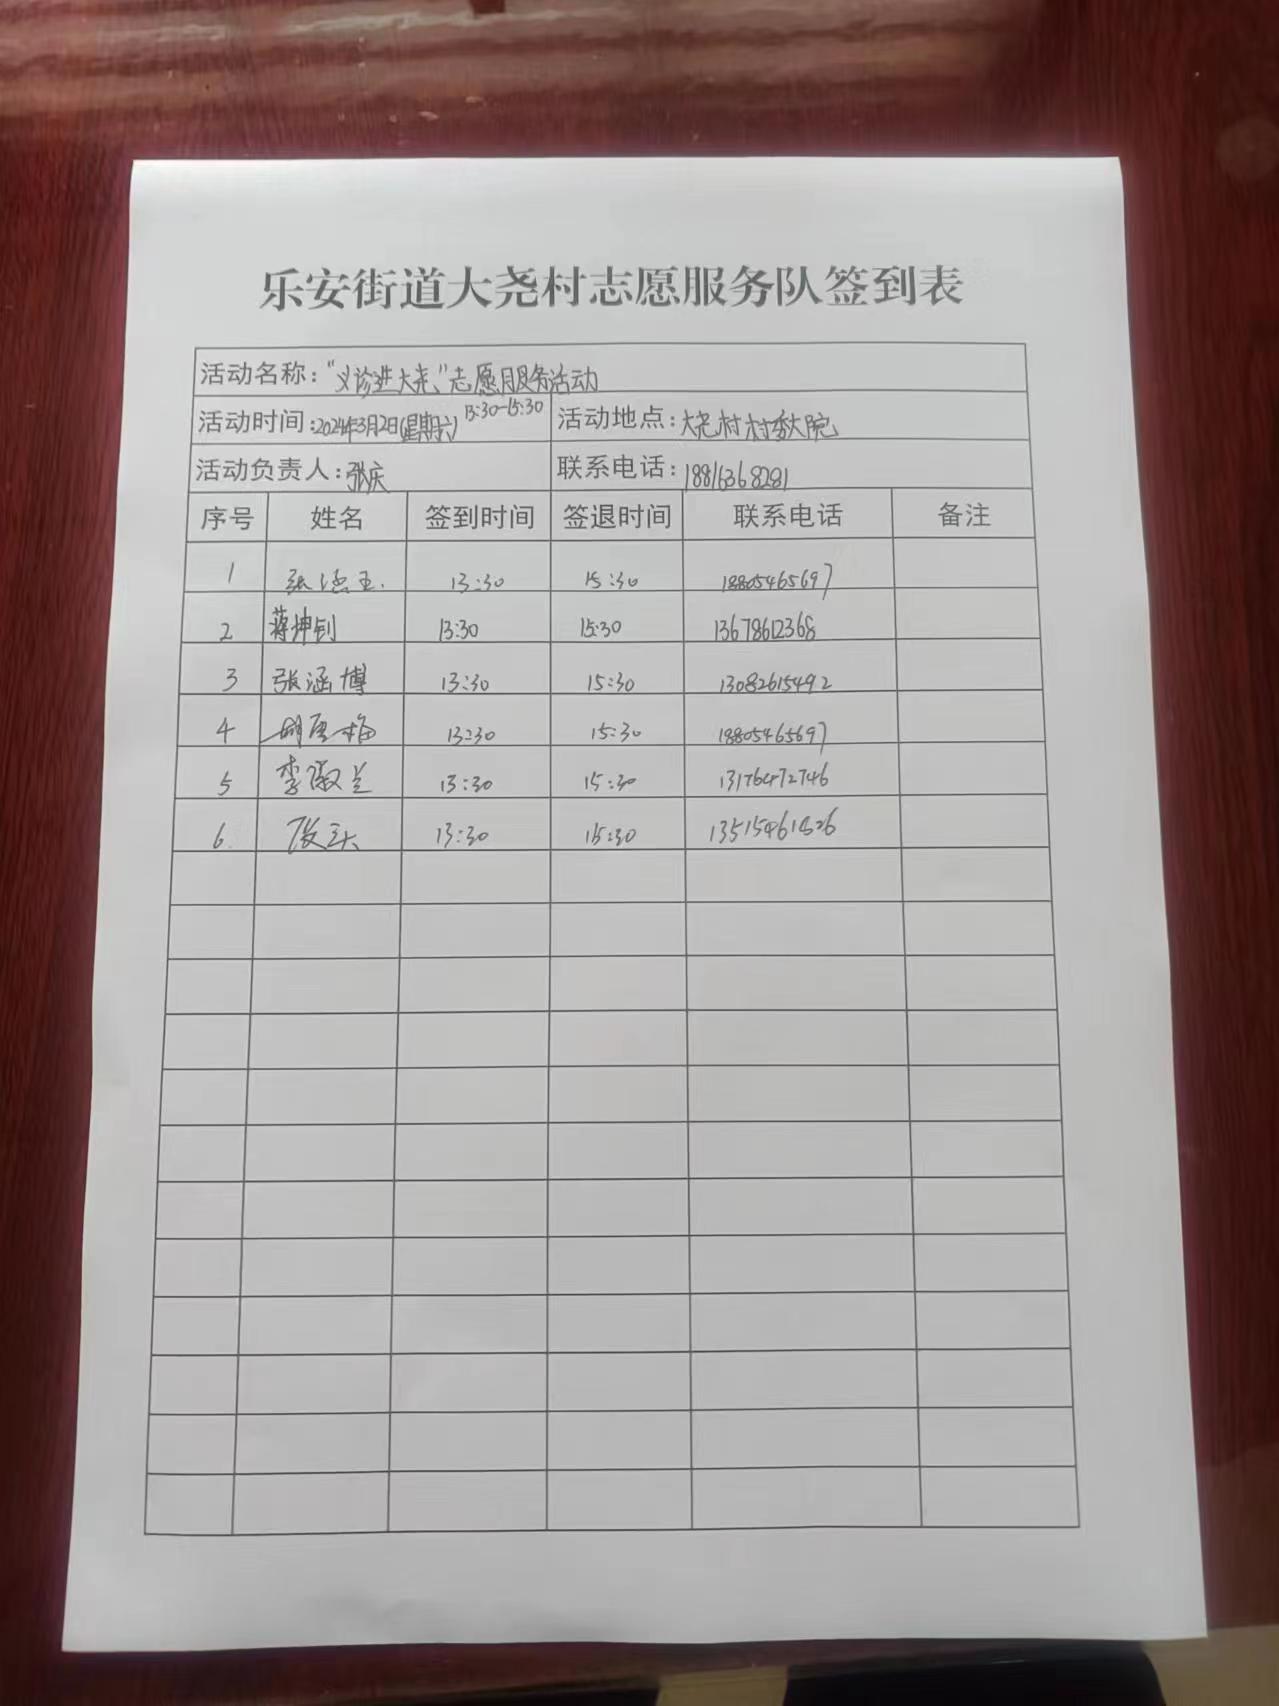 乐安街道大尧村志愿服务队签到表
活动名称："义诊进大尧"志愿服务活动
活动时间：2024年3月2日(星期六) 13:30-15:30 活动地点：大尧村村委大院
活动负责人：张庆 联系电话：18816368281
序号 姓名 签到时间 签退时间 联系电话 备注
1 张 玉 13:30 15:30 18805465697
2 蒋坤钊 13:30 15:30 13678612368
3 张涵博 13:30 15:30 13082615492
4 13:30 15:30 18805465697
5 李淑兰 13:30 15:30 13176472746
6. 13:30 15:30